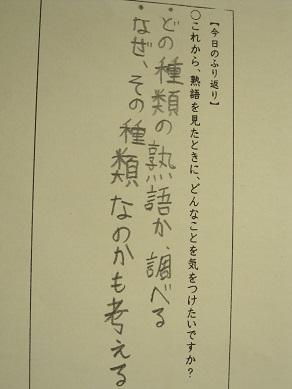 【今日のふり返り】
○これから、熟語を見たときに、どんなことを気をつけたいですか?
・どの種類の熟語か、調べる
・なぜ、その種類なのかも考える